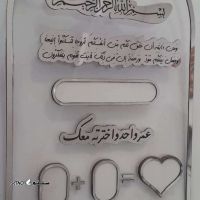 بسم الله الرحمن الرحيم
ومن آياته أن خلق لكم من أنفسكم أزواجا لتسكنوا إليها
وجعل بينكم مودة ورحمة إن في ذلك لآيات لقوم يتفكرون
عمر واحد واخترته معك
+ =